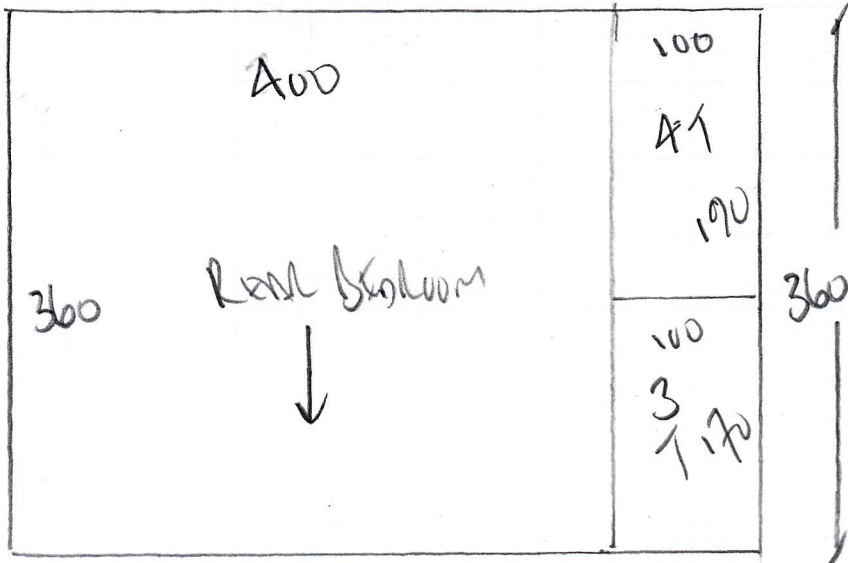 400
100
4↑
190
REAR BEDROOM
360
360
100
3
↑ 170